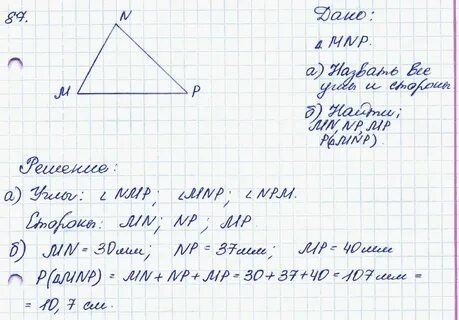 87.
N
M
P
Дано:
△ MNP.
а) Назвать все
углы и стороны
б) Найти;
MN, NP, MP
P(△MNP).
Решение:
а) Углы: ∠ NMP; ∠MNP; ∠NPM.
Стороны: MN; NP; MP.
б) MN = 30мм; NP = 37мм; MP = 40мм
P(△MNP) = MN + NP + MP = 30 + 37 + 40 = 107 мм =
= 10,7 см.